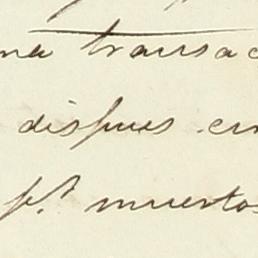 una transac
dispues en
pr muertos